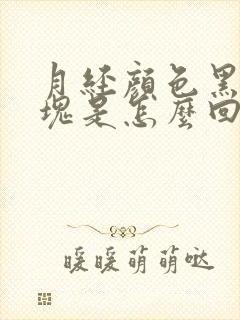 月经颜色黑
塊是怎麼回
暖暖萌萌哒